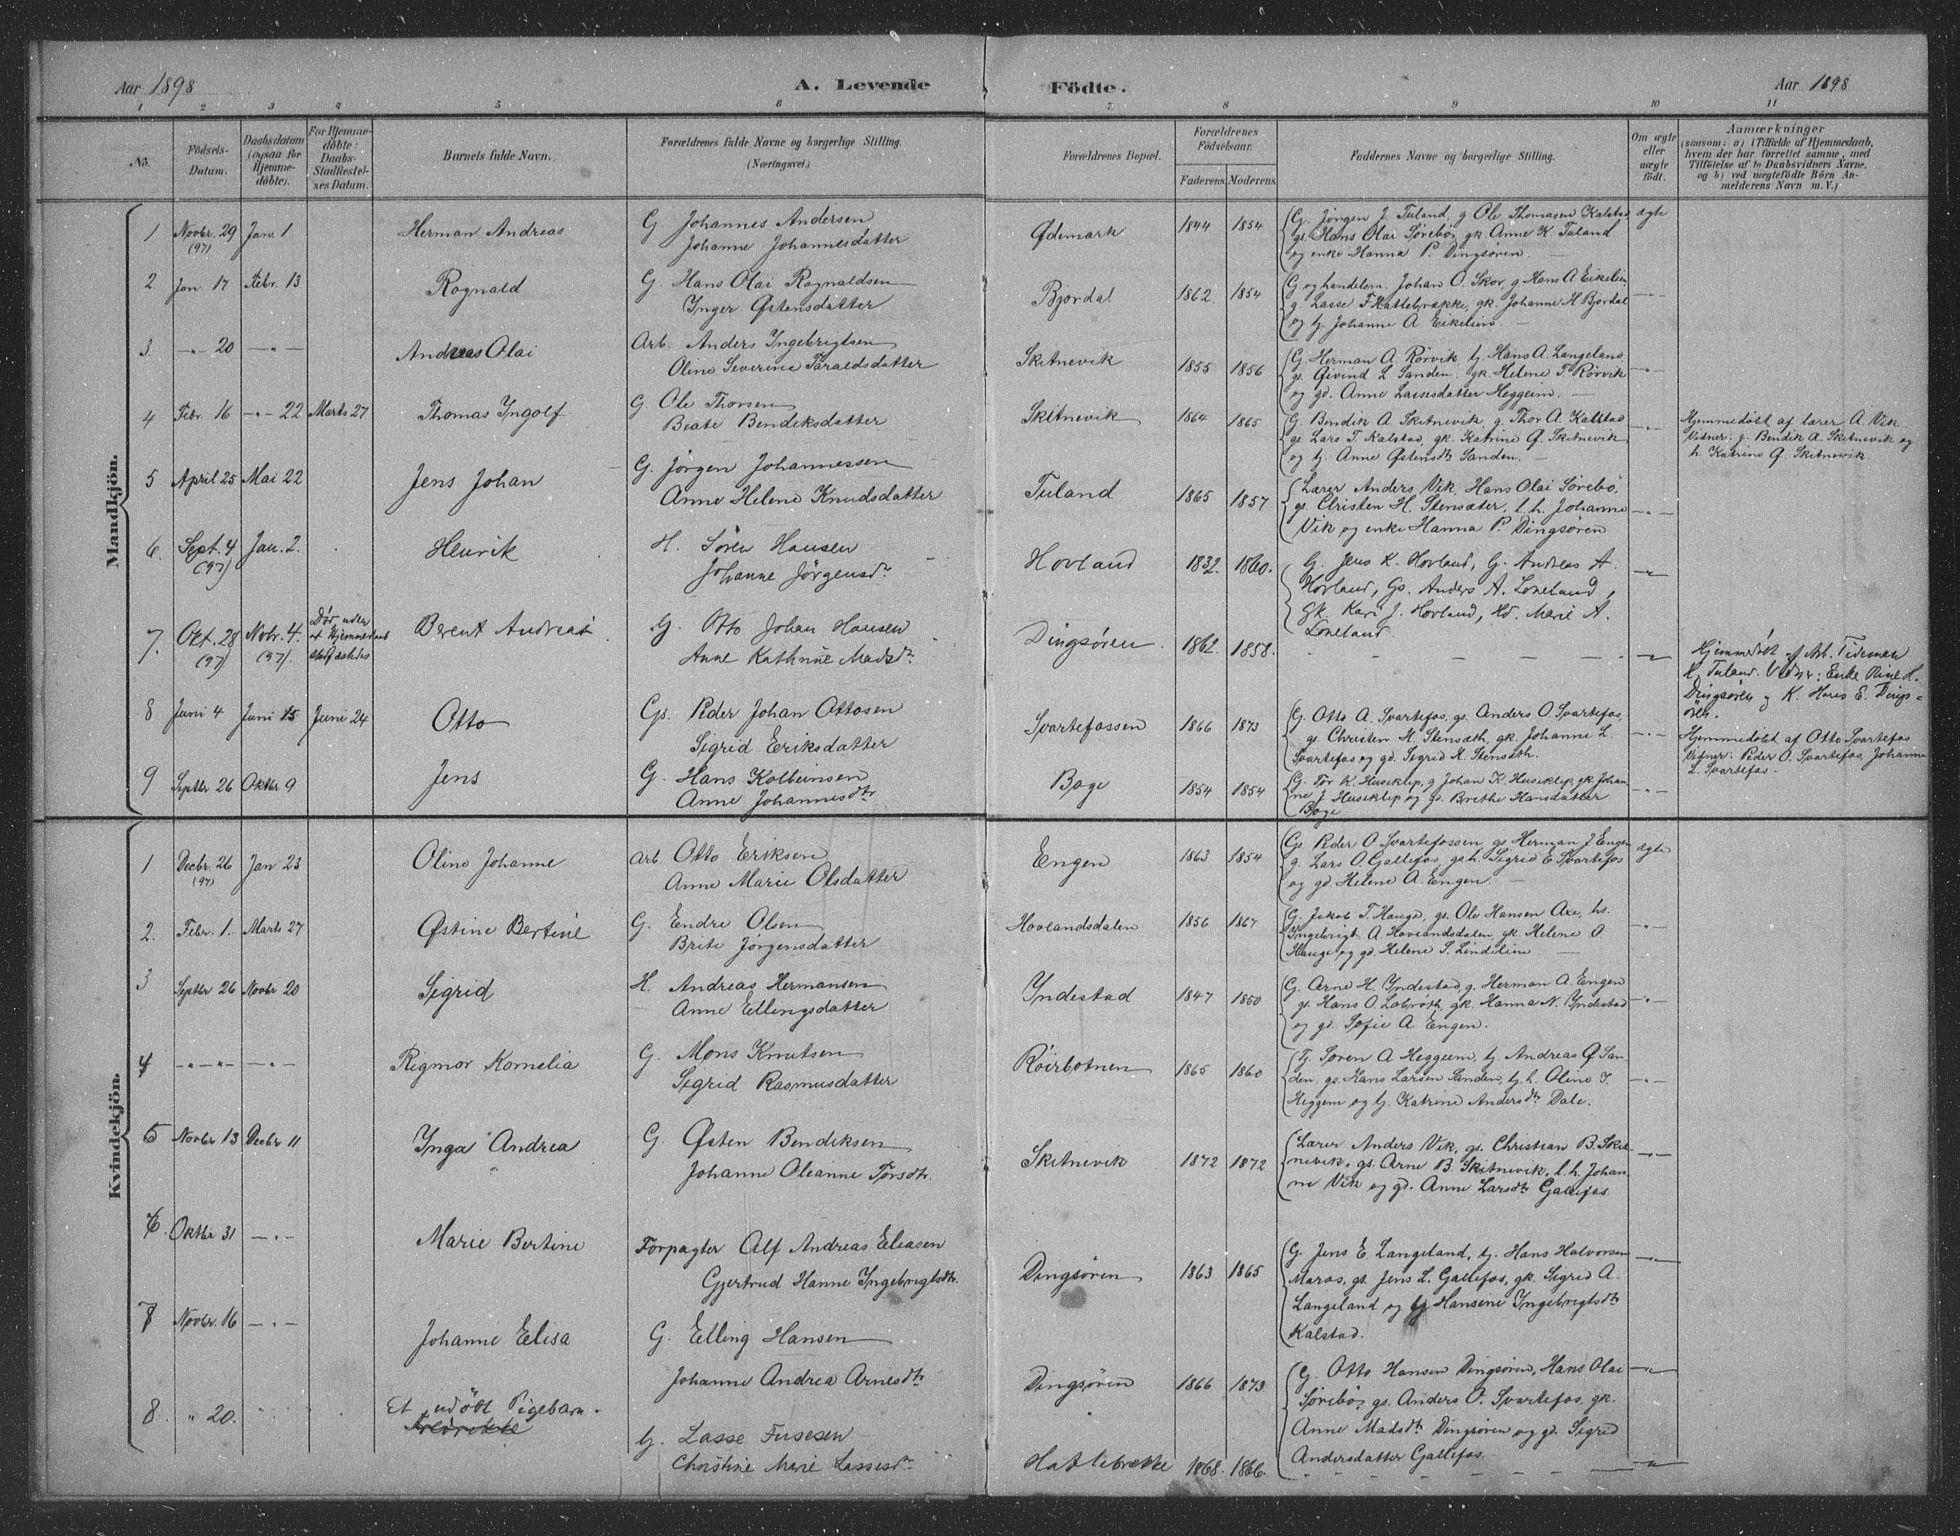 Aar 1898 A. Levende Födte. Aar 1898
1 2 3 4 5 6 7 8 9 10 11
No.
Födsels-Datum.
Daabsdatum (ogsaa for Hjemmedöbte).
For Hjemmedöbte: Daabs-Stadfæstelses Datum.
Barnets fulde Navn.
Forældrenes fulde Navne og borgerlige Stilling.
(Næringsvei.)
Forældrenes Bopæl.
Forældrenes Födselsaar.
Faderens. Moderens.
Faddernes Navne og borgerlige Stilling.
Om ægte eller uægte födt.
Anmærkninger
(saasom: a) i Tilfælde af Hjemmedaab,
hvem der har forrettet samme, med
Tilföielse af to Daabsvidners Navne,
og b) ved uægtefödte Börn An-
melderens Navn m. V.)
Mandkjön.
1 Novbr. 29 (97) Jan. 1 Herman Andreas G. Johannes Andersen
Johanne Johannesdatter Ødemark 1844 1854 G. Jørgen J. Tuland, g Ole Thomasen Kalstad,
gs. Hans Olai Sørebø, gk Anne K. Tuland
og enke Hanna P. Dingsøren. ægte
2 Jan. 17 Febr. 13 Rognald G. Hans Olai Rognaldsen
Inger Østensdatter Bjordal 1862 1854 G og handelsm. Johan O. Skor, g Hans A Eikelien
g. Lasse F Hattebrække, gk. Johanne H Bjordal
og tj. Johanne A Eikelien. -"-
3. -"- 20 -"- Andreas Olai Arb. Anders Ingebrigtsen
Oline Severine Taraldsdatter Skitnevik 1855 1856 G. Herman A. Rørvik, tj. Hans A. Langeland,
gs. Øivind L Sanden, gk. Helene T. Rørvik
og gd. Anne Lassesdatter Heggeim. -"-
4 Febr. 16 -"- 22 Marts 27 Thomas Ingolf G. Ole Thorsen
Beate Bendiksdatter Skitnevik 1864 1865 G. Bendik A Skitnevik, g. Thor A Kalstad
gs. Lars T. Kalstad, gk. Katrine Ø. Skitnevik
og tj. Anne Østensdtr Sanden. -"- Hjemmedøbt af lærer A. Vik
Vidner: g. Bendik A. Skitnevik og
h. Katrine Ø. Skitnevik.
5 April 25 Mai 22 Jens Johan G. Jørgen Johannessen
Anne Helene Knudsdatter Tuland 1865 1857 Lærer Anders Vik, Hans Olai Sørebø,
gs. Christen H. Stensæter, l.h. Johanne
Vik og enke Hanna P. Dingsøren -"-
6. Sept. 4 (97) Jan. 2. Henrik H. Sören Hansen
Johanne Jörgensdr Hovland 1832. 1860. G. Jens K. Hovland, G. Andreas A.
Hovland, Gs. Anders A. Loneland,
Gk. Kari J. Hovland, Hd. Marie A.
Loneland. -"-
7. Okt. 28 (97) Nobr. 4. (97). Dør uden at Hjemmedaab stadfæstedes Berent Andreas G. Otto Johan Hansen
Anne Kathrine Madsdr Dingsøren. 1862. 1858. - - - - - -"- Hjemmedøbt af Arb. Tideman
H. Tuland. Vidner: Enke Oline H.
Dingsøren og K. Hans E. Dings-
øren.
8 Juni 4 Juni 15 Juni 24 Otto Gs. Peder Johan Ottosen
Sigrid Eriksdatter Svartefossen 1866 1873 G. Otto A. Svartefos, gs. Anders O Svartefos,
gs. Christen H. Stensæth, gk. Johanne L.
Svartefos og gd. Sigrid H. Stensæth. -"- Hjemmedøbt af Otto Svartefos
Vidner: Peder O. Svartefos, Johanne
L. Svartefos.
9 Septbr 26 Oktbr 9 Jens G. Hans Kolbeinsen
Anne Johannesdtr Boge 1854 1854 G. Tor K. Husiklep, g Johan K. Husiklep, gk. Johan
ne J Husiklep og gs. Brithe Hansdatter
Boge -"-
Kvindekjön.
1 Decbr. 26 (97) Jan 23 Oline Johanne Arb. Otto Eriksen
Anne Marie Olsdatter Engen 1863 1854 Gs. Peder O Svartefossen, gs Herman J Engen
g. Lars O Gallefos, gsh. Sigrid E Svartefos
og gd. Helene A. Engen. ægte
2. Febr. 1. Marts 27 Østine Bertine G. Endre Olsen
Brite Jørgensdatter Hovlandsdalen 1856 1867 G. Jakob T. Hauge, gs. Ole Hansen Axe, hs.
Ingebrigt A Hovlandsdalen, gk. Helene O
Hauge og gd. Helene S. Lindelien -"-
3 Septbr 26 Novbr 20 Sigrid H. Andreas Hermansen
Anne Ellingsdatter Yndestad 1847 1850 G. Arne H. Yndestad, g. Herman A. Engen
gs. Hans O. Løbrøth, gk. Hanna N. Yndestad
og gd. Sofie A. Engen. -"-
4 -"-"- -"- Rigmor Kornelia G. Mons Knutsen
Sigrid Rasmusdatter Röirbotnen 1865 1860 Tj. Søren A Heggeim, tj. Andreas Ø San-
den, gs. Hans Larsen Sanden, tj.h. Oline S.
Heggem og tj. Katrine Andersdtr Dale. -"-
5 Novbr 13 Decbr 11 Inga Andrea G. Østen Bendiksen
Johanne Oleanne Torsdtr. Skitnevik 1872 1872 Lærer Anders Vik, gs. Christian B. Skit-
nevik, gs. Arne B. Skitnevik, l.h. Johan-
ne Vik og gd. Anne Larsdtr Gallefos. -"-
6. Oktbr 31 -"- Marie Bertine Forpagter Alf Andreas Eliasen
Gjertrud Hanne Ingebrigtsdtr. Dingsøren 1863 1865 G. Jens E. Langeland, tj. Hans Halvorsen
Maras, gs. Jens L. Gallefos, gk. Sigrid A.
Langeland og tj Hansine Ingebrigtsdtr
Kalstad. -"-
7 Novbr. 16 -"- Johanne Elisa G. Elling Hansen
Johanne Andrea Arnesdtr Dingsøren 1866 1873 G. Otto Hansen Dingsøren, Hans Olai
Sørebø, gs. Anders O. Svartefos, gk.
Anne Madsdtr Dingsøren og gd. Sigrid
Andersdatter Gallefos. -"-
8. " 20. Et udöbt Pigebarn.
Fredrikke G. Lasse Fusesen
Christine Marie Lassesdr Hattebrække 1868. 1866. - - - - -"-